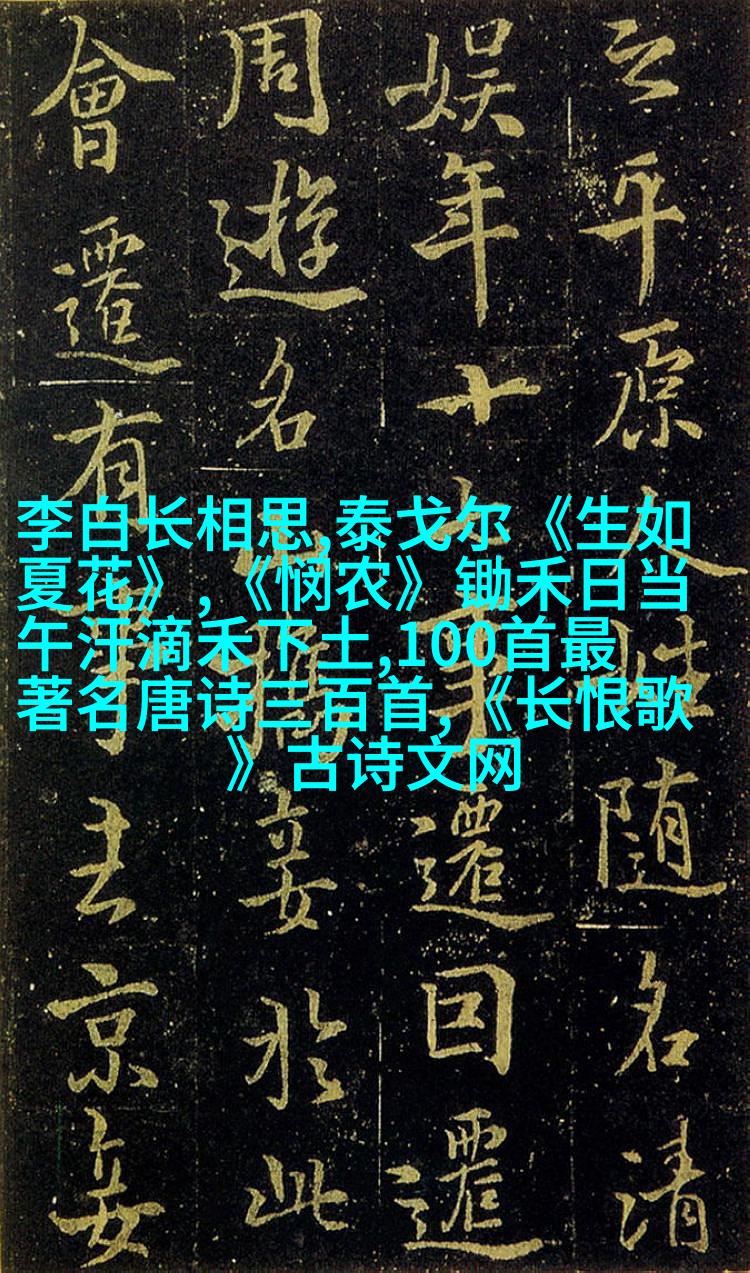 之平原人随名清
娱年十七遷回遷
周遊名山於此
會遷有事京
李白长相思,泰戈尔《生如
夏花》,《悯农》锄禾日当
午汗滴禾下土,100首最
著名唐诗三百首,《长恨歌
》古诗文网